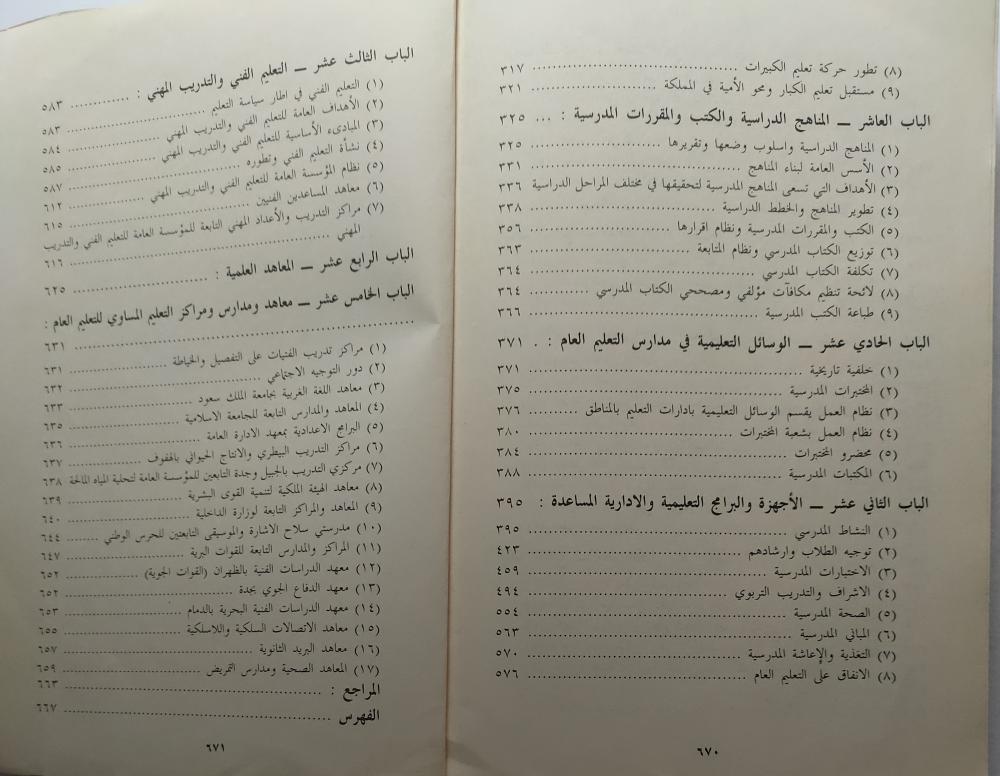 (٨) تطور حركة تعليم الكبيرات ........ ٣١٧
(٩) مستقبل تعليم الكبار ومحو الأمية في المملكة ........ ٣٢١
الباب العاشر ــ المناهج الدراسية والكتب والمقررات المدرسية : ... ٣٢٥
(١) المناهج الدراسية واسلوب وضعها وتقريرها ........ ٣٢٥
(٢) الأسس العامة لبناء المناهج ........ ٣٣١
(٣) الأهداف التي تسعى المناهج المدرسية لتحقيقها في مختلف المراحل الدراسية ٣٣٦
(٤) تطوير المناهج والخطط الدراسية ........ ٣٣٨
(٥) الكتب والمقررات المدرسية ونظام اقرارها ........ ٣٥٦
(٦) توزيع الكتاب المدرسي ونظام المتابعة ........ ٣٦٣
(٧) تكلفة الكتاب المدرسي ........ ٣٦٤
(٨) لائحة تنظيم مكافآت مؤلفي ومصححي الكتاب المدرسي ........ ٣٦٤
(٩) طباعة الكتب المدرسية ........ ٣٦٦
الباب الحادي عشر ــ الوسائل التعليمية في مدارس التعليم العام : . ٣٧١
(١) خلفية تاريخية ........ ٣٧١
(٢) المختبرات المدرسية ........ ٣٧٥
(٣) نظام العمل بقسم الوسائل التعليمية بادارات التعليم بالمناطق ........ ٣٧٦
(٤) نظام العمل بشعبة المختبرات ........ ٣٨٠
(٥) محضرو المختبرات ........ ٣٨٤
(٦) المكتبات المدرسية ........ ٣٨٨
الباب الثاني عشر ــ الأجهزة والبرامج التعليمية والادارية المساعدة : ٣٩٥
(١) النشاط المدرسي ........ ٣٩٥
(٢) توجيه الطلاب وارشادهم ........ ٤٢٣
(٣) الاختبارات المدرسية ........ ٤٥٩
(٤) الاشراف والتدريب التربوي ........ ٤٩٤
(٥) الصحة المدرسية ........ ٥٥٤
(٦) المباني المدرسية ........ ٥٦٣
(٧) التغذية والإعاشة المدرسية ........ ٥٧٠
(٨) الانفاق على التعليم العام ........ ٥٧٦
٦٧٠
الباب الثالث عشر ــ التعليم الفني والتدريب المهني : ........ ٥٨٣
(١) التعليم الفني في اطار سياسة التعليم ........ ٥٨٣
(٢) الأهداف العامة للتعليم الفني والتدريب المهني ........ ٥٨٤
(٣) المبادىء الأساسية للتعليم الفني والتدريب المهني ........ ٥٨٥
(٤) نشأة التعليم الفني وتطوره ........ ٥٨٧
(٥) نظام المؤسسة العامة للتعليم الفني والتدريب المهني ........ ٦١٢
(٦) معاهد المساعدين الفنيين ........ ٦١٥
(٧) مراكز التدريب والأعداد المهني التابعة للمؤسسة العامة للتعليم الفني والتدريب
المهني ........ ٦١٦
الباب الرابع عشر ــ المعاهد العلمية : ........ ٦٢٥
الباب الخامس عشر ــ معاهد ومدارس ومراكز التعليم المساوي للتعليم العام :
........ ٦٣١
(١) مراكز تدريب الفتيات على التفصيل والخياطة ........ ٦٣١
(٢) دور التوجيه الاجتماعي ........ ٦٣٢
(٣) معاهد اللغة العربية بجامعة الملك سعود ........ ٦٣٣
(٤) المعاهد والمدارس التابعة للجامعة الاسلامية ........ ٦٣٥
(٥) البرامج الاعدادية بمعهد الادارة العامة ........ ٦٣٦
(٦) مراكز التدريب البيطري والانتاج الحيواني بالهفوف ........ ٦٣٧
(٧) مركزي التدريب بالجبيل وجدة التابعين للمؤسسة العامة لتحلية المياه المالحة ٦٣٨
(٨) معاهد الهيئة الملكية لتنمية القوى البشرية ........ ٦٣٩
(٩) المعاهد والمراكز التابعة لوزارة الداخلية ........ ٦٤٠
(١٠) مدرستي سلاح الاشارة والموسيقى التابعتين للحرس الوطني ........ ٦٤٤
(١١) المراكز والمدارس التابعة للقوات البرية ........ ٦٤٧
(١٢) معهد الدراسات الفنية بالظهران (القوات الجوية) ........ ٦٥٢
(١٣) معهد الدفاع الجوي بجدة ........ ٦٥٢
(١٤) معهد الدراسات الفنية البحرية بالدمام ........ ٦٥٣
(١٥) معاهد الاتصالات السلكية واللاسلكية ........ ٦٥٥
(١٦) معاهد البريد الثانوية ........ ٦٥٧
(١٧) المعاهد الصحية ومدارس التمريض ........ ٦٥٩
المراجع : ........ ٦٦٣
الفهرس ........ ٦٦٧
٦٧١